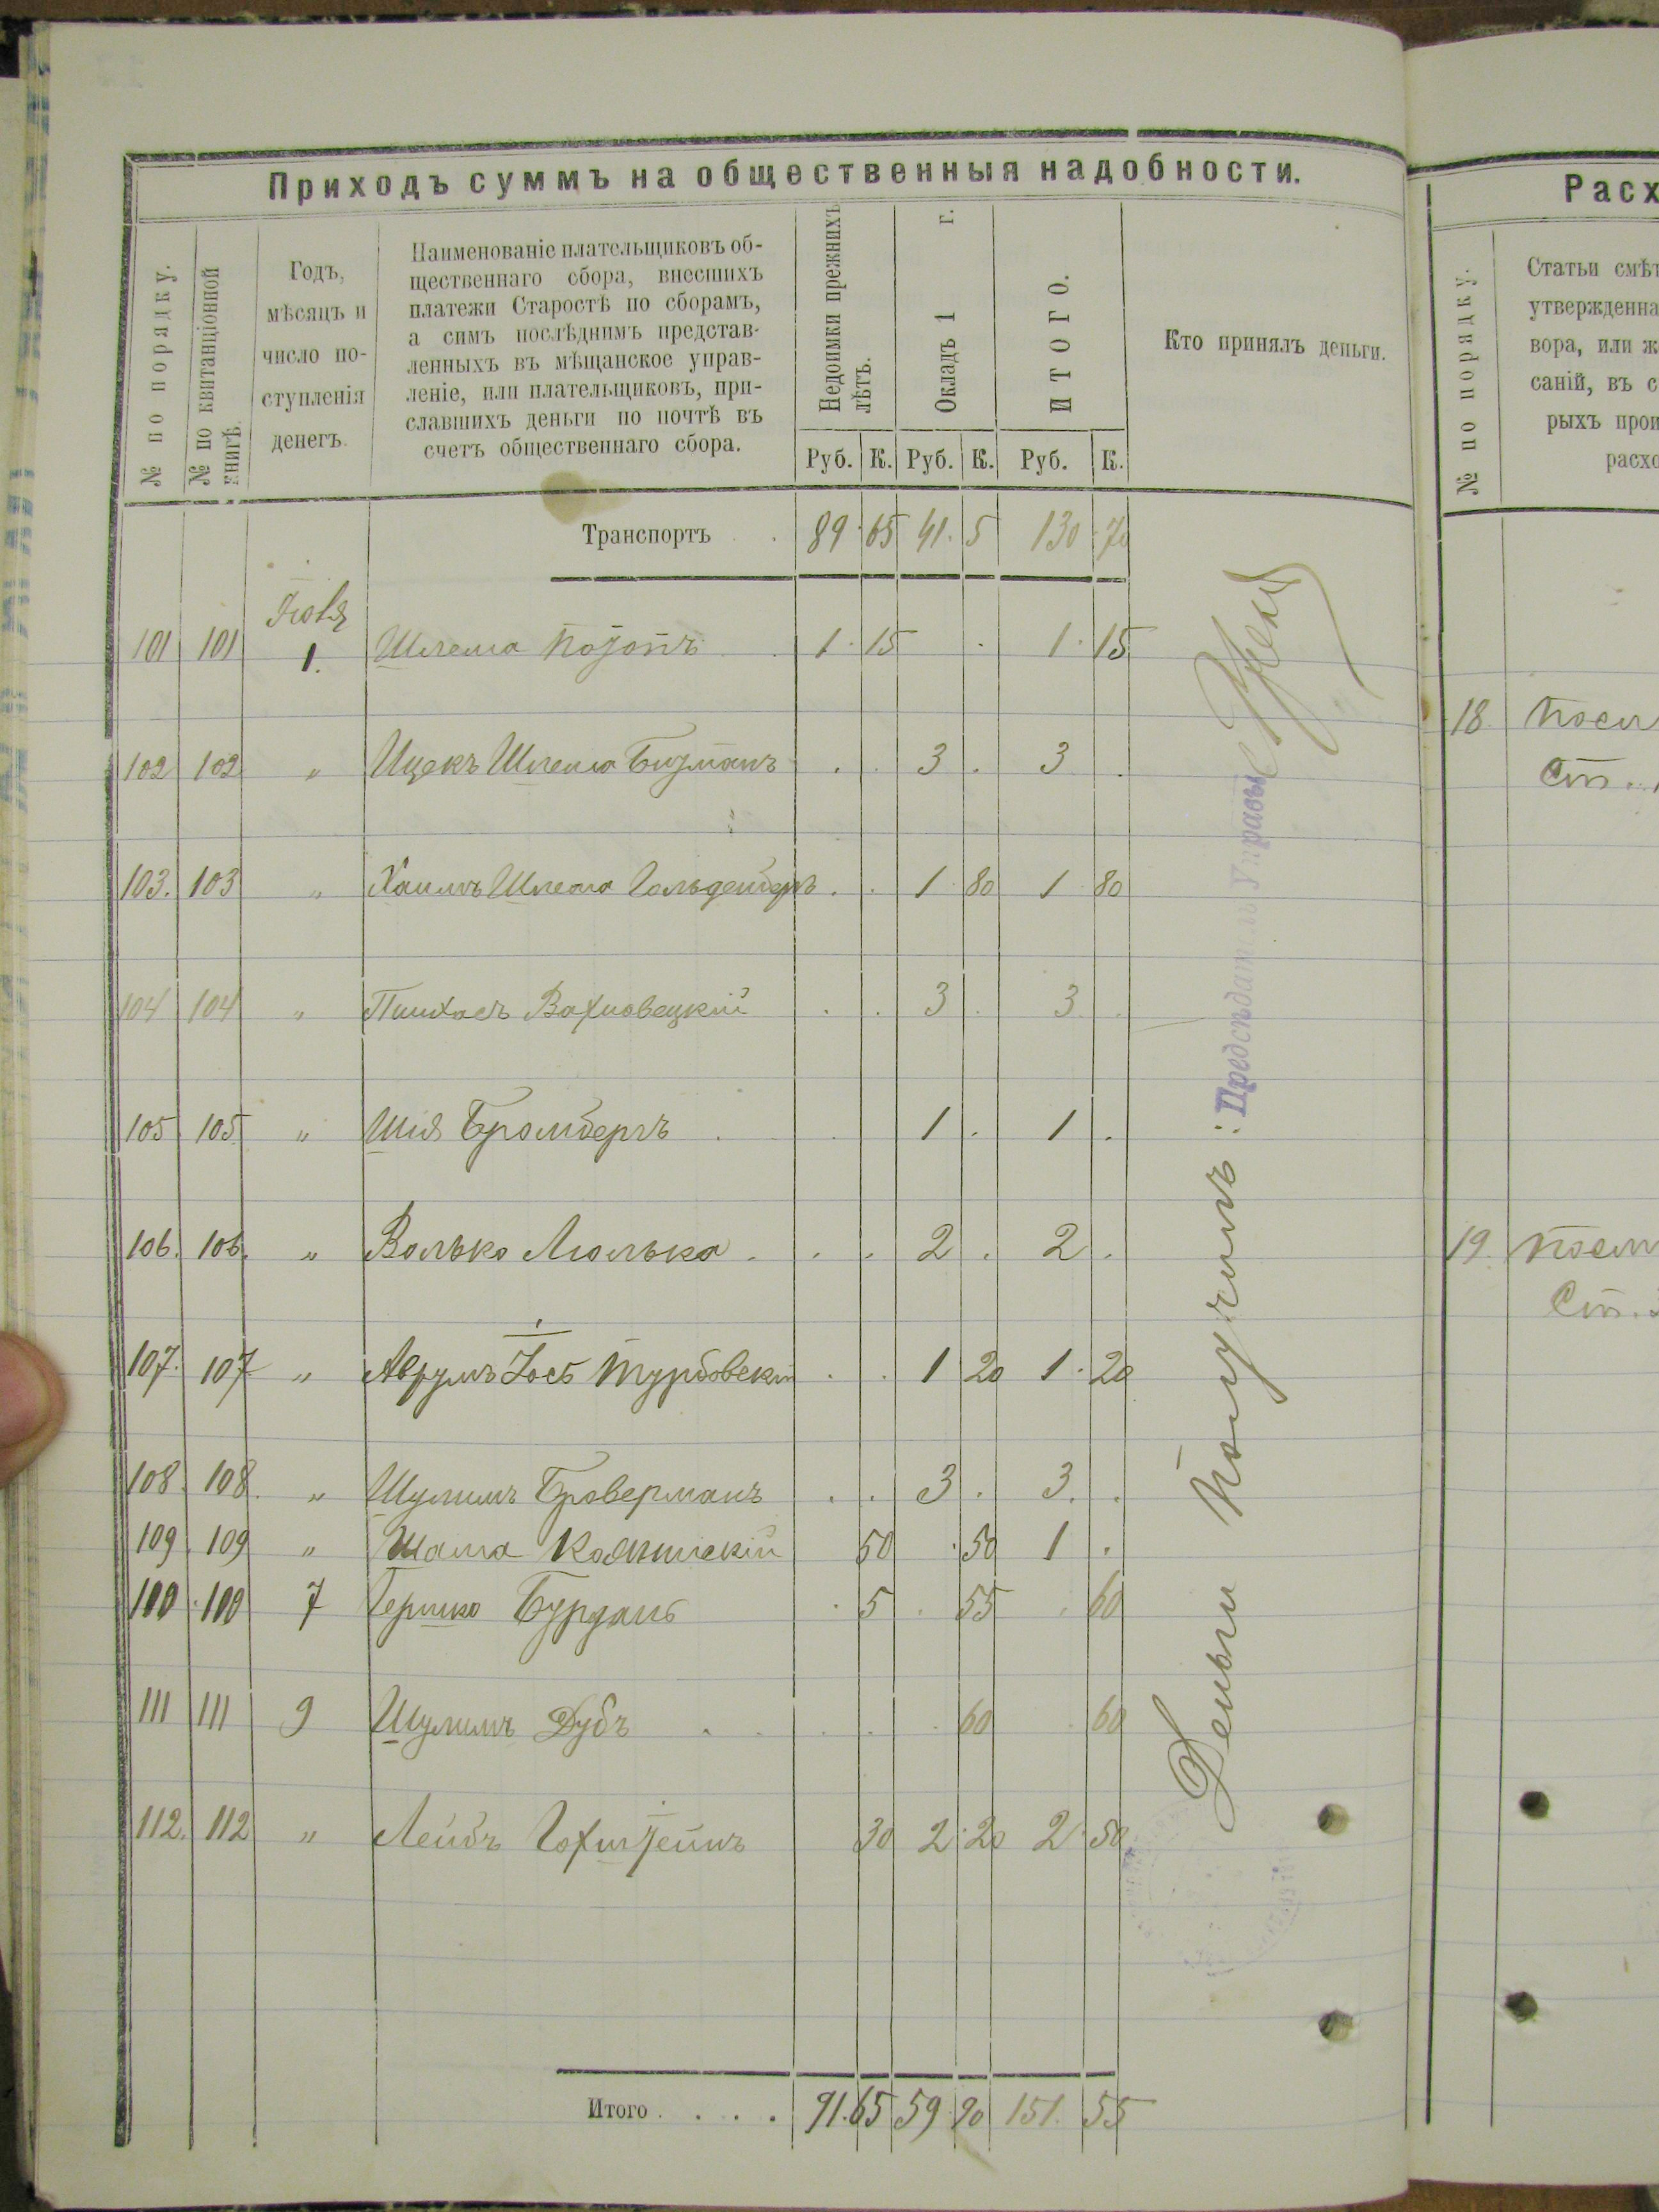 Приходъ суммъ на общественныя надобности.
№ по порядку.
№ по квитанціонной книгѣ.
Годъ,
мѣсяцъ и
число по-
ступленія
денегъ.
Наименованіе плательщиковъ об-
щественнаго сбора, внесшихъ
платежи Старостѣ по сборамъ,
а симъ послѣднимъ представ-
ленныхъ въ мѣщанское управ-
леніе, или плательщиковъ, при-
славшихъ деньги по почтѣ въ
счетъ общественнаго сбора.
Недоимки прежнихъ
лѣтъ.
Окладъ 1 г.
ИТОГО.
Кто принялъ деньги.
Руб. К. Руб. К. Руб. К.
Транспортъ . . 89 65 41 5 130 70
101 101 1. Шлема 1 15 . 1 15
102 102 " Ицекъ Шлема . . 3 . 3 .
103. 103 " Хаимъ Шлема . . 1 80 1 80
104 104 " Пинхасъ Вахновецкій . . 3 . 3 .
105 105 " Шія Бромбергъ . 1 . 1 .
106. 106. " Волько Люлька . . . 2 . 2 .
107. 107 " Аврумъ Іосъ Турбовскій . . 1 20 1 20
108. 108. " Шулимъ Броверманъ . . 3 . 3. .
109 109 " Шама 50 50 1 .
110 110 7 Гершко Бурданъ 5 55 60
111 111 9 Шулимъ Дубъ 60 60
112. 112 " Лейбъ Гохштейнъ 30 2 20 2 50
Итого . . . . 91 65 59 90 151 55
Деньги получилъ: Предсѣдатель Управы
Расх
№ по порядку.
Статьи смѣт
утвержденна
вора, или ж
саній, въ с
рыхъ прои
расхо
18.
Ст.
19.
Ст.